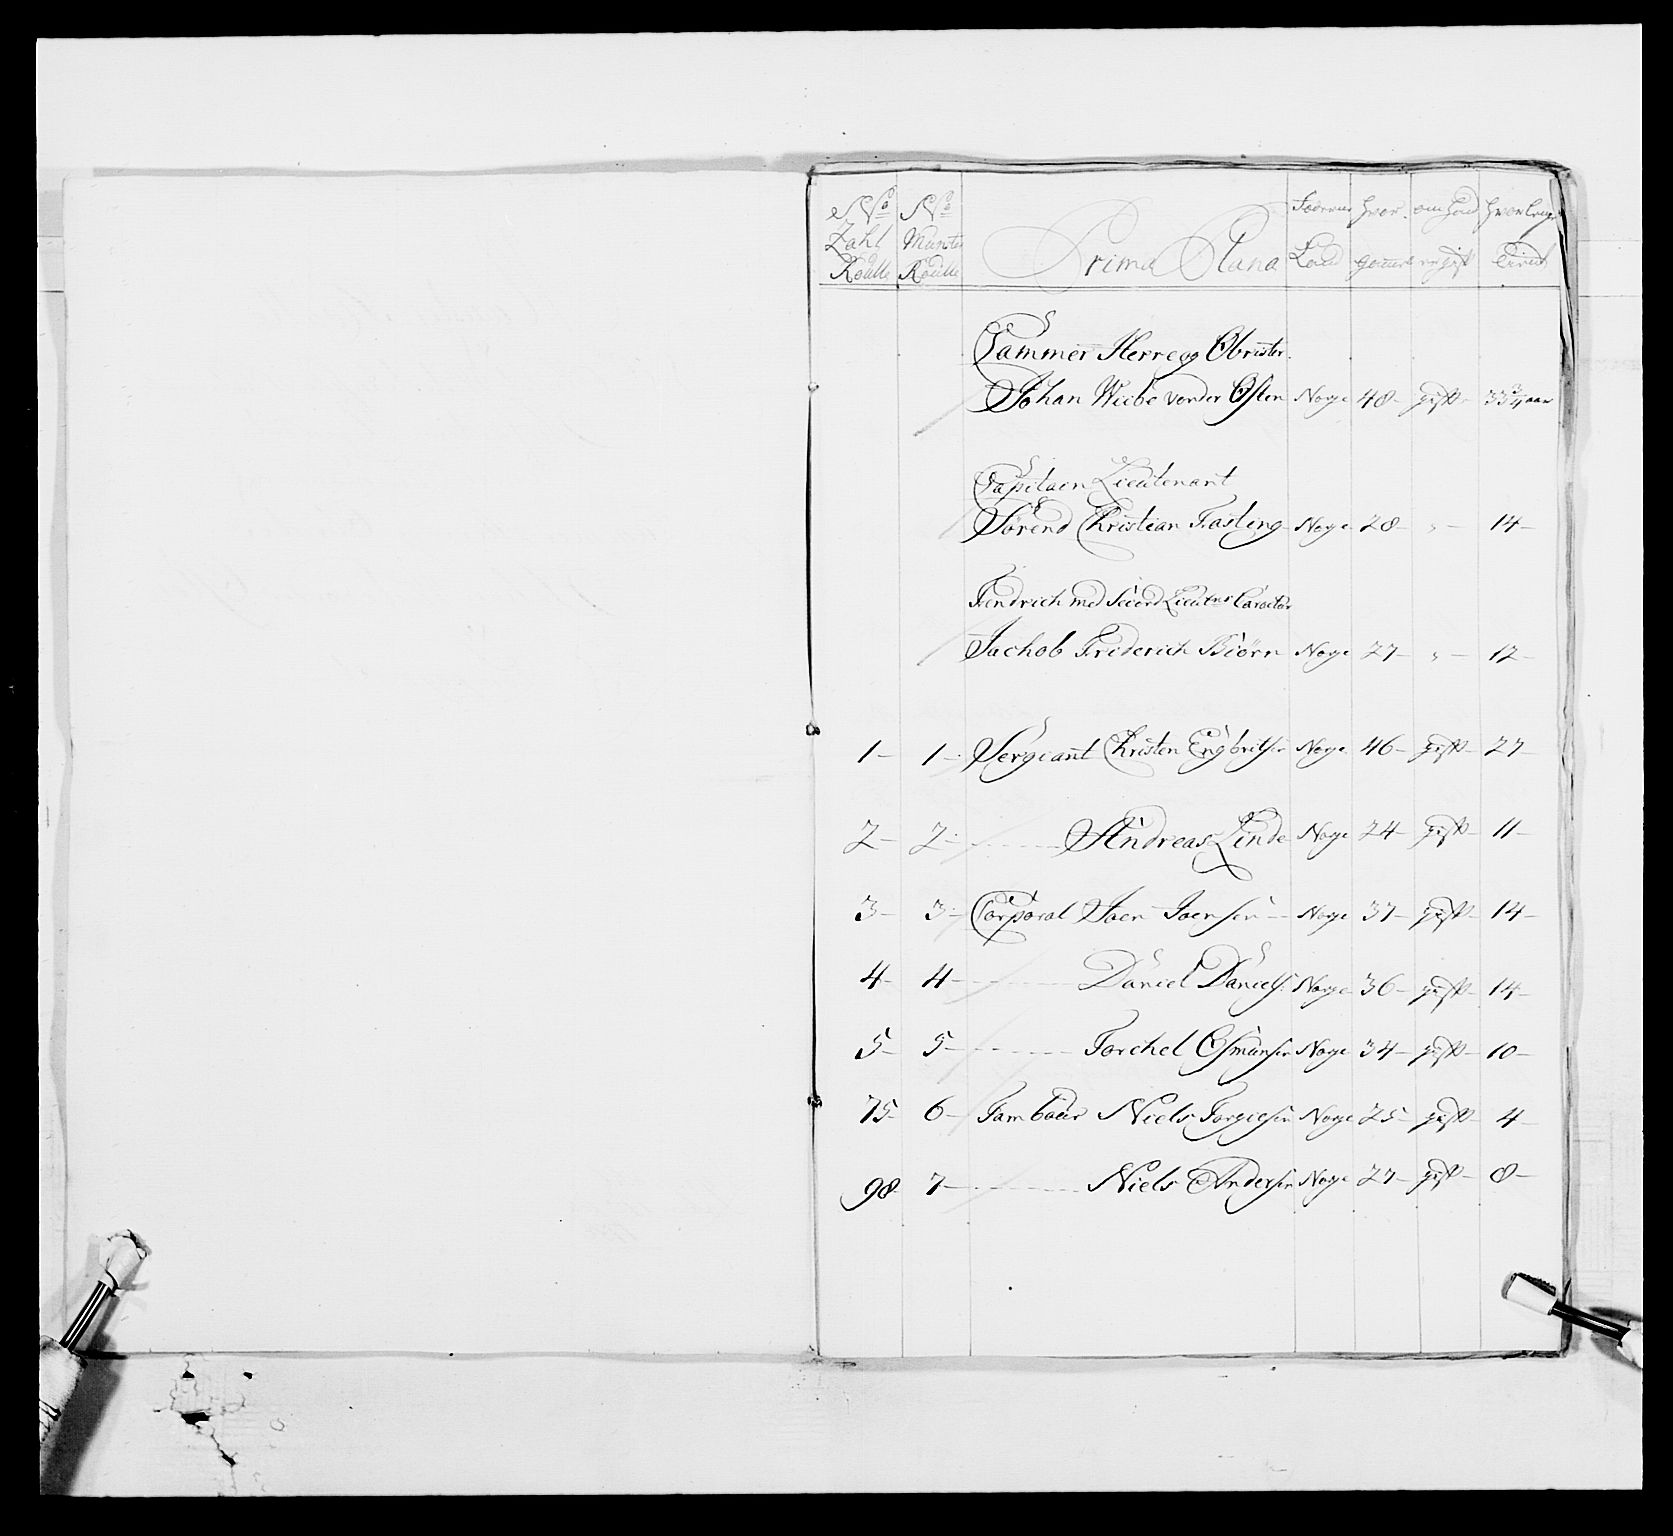 No No Föderne hvor om hand hvor lenge
Zahl Munster Prima Plana Land gammel er gift tient
Roulle Roulle
Cammer Herre og Obrister
Johan Wiibe von der Osten Norge 48 gift 33 3/4 aar
Capitain Lieutenant
Sörend Christian Fasting Norge 28 " 14
Fendrich med Secord Lieutns Caracter
Jachob Friderich Biörn Norge 27 " 12
1 1 Sergiant Christen Engbritsen Norge 46 gift 27
2 2 Andreas Linde Norge 24 gift 11
3 3 Corporal Joen Joensen Norge 37 gift 14
4 4 Daniel Daniels: Norge 36 gift 14
5 5 Torchel Osmunsen Norge 34 gift 10
75 6 Tambour Niels Torgiesen Norge 25 gift 4
98 7 Niels Andersen Norge 27 gift 8